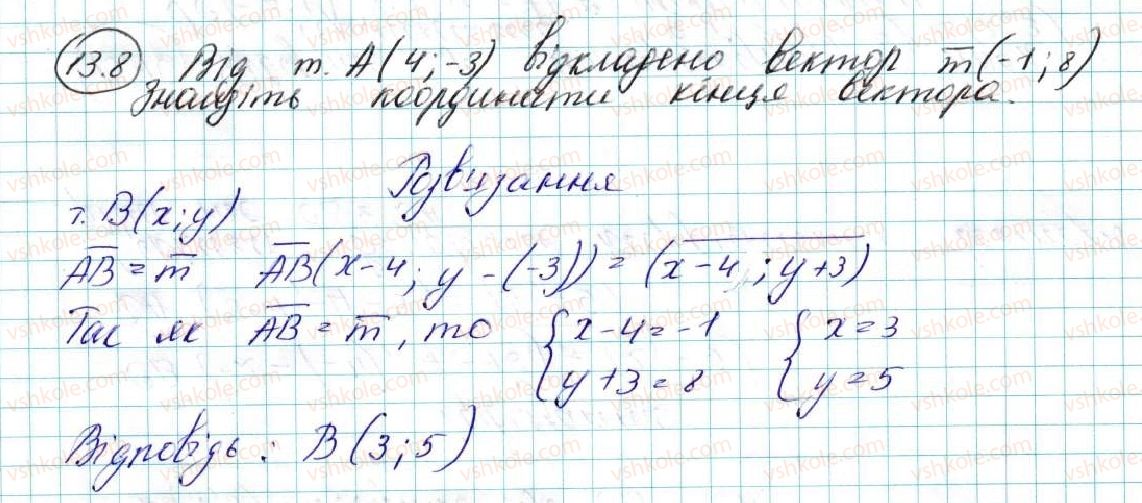 13.8 Від т. A(4;-3) відкладено вектор m̅(-1;8)
Знайдіть координати кінця вектора.
Розвизання
т. B(x;y)
A̅B̅ = m̅ A̅B̅(x-4; y-(-3)) = (x-4; y+3)
Так як A̅B̅ = m̅, то { x-4=-1 { x=3
y+3=8 y=5
Відповідь: B(3;5)